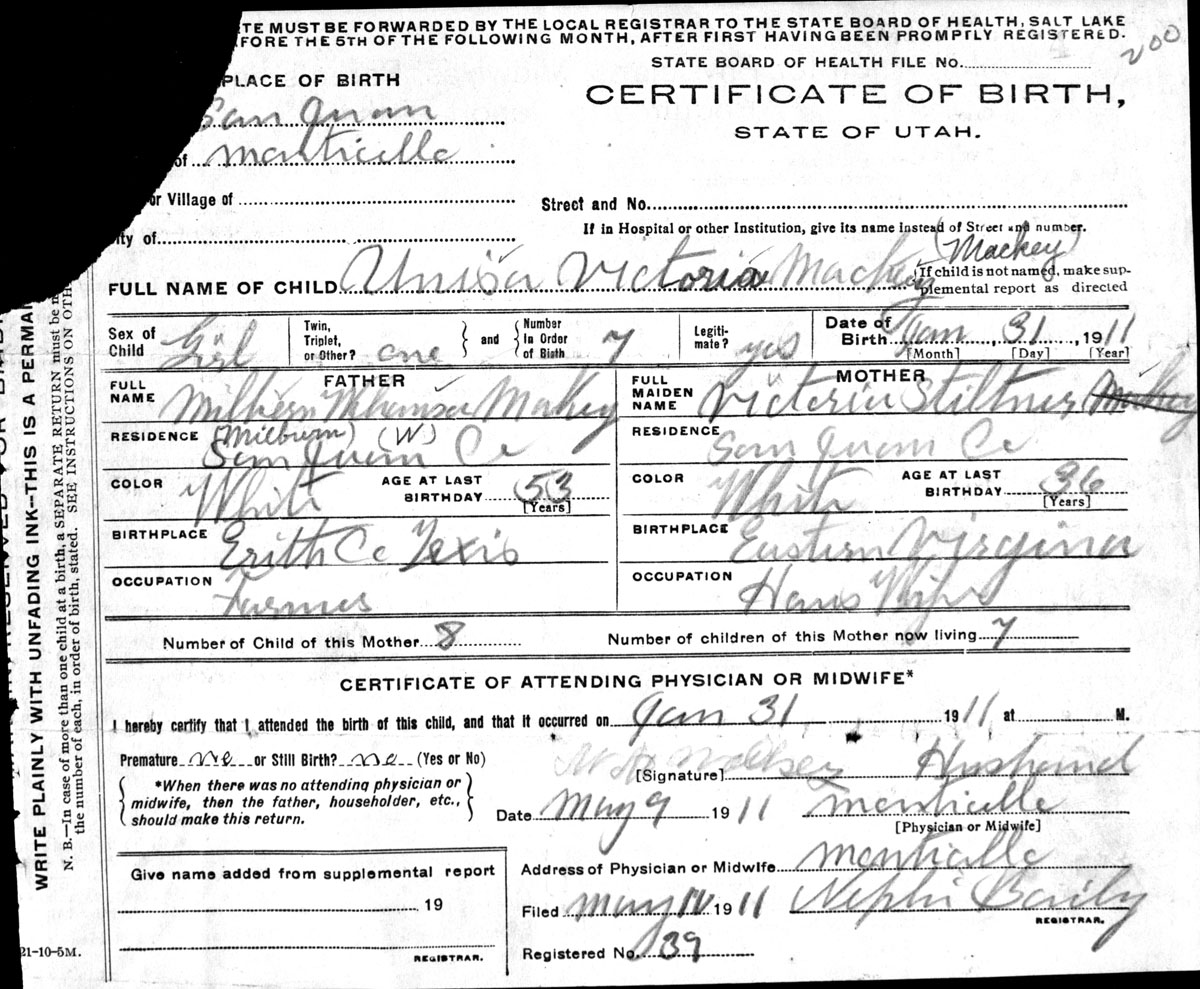 TE MUST BE FORWARDED BY THE LOCAL REGISTRAR TO THE STATE BOARD OF HEALTH, SALT LAKE
FORE THE 5TH OF THE FOLLOWING MONTH, AFTER FIRST HAVING BEEN PROMPTLY REGISTERED.
200
STATE BOARD OF HEALTH FILE No.
PLACE OF BIRTH
CERTIFICATE OF BIRTH,
San Juan
STATE OF UTAH.
of Monticello
or Village of
Street and No.
If in Hospital or other Institution, give its name instead of Street and number.
ity of
(Mackey)
FULL NAME OF CHILD Victoria Mackey
(If child is not named, make sup-
plemental report as directed
Sex of Child Girl
Twin, Triplet, or Other? one } and { Number In Order of Birth 7
Legiti-mate? yes
Date of Birth Jan 31, 1911
[Month] [Day] [Year]
FATHER
MOTHER
FULL NAME Makey
FULL MAIDEN NAME Victoria Stiltner
(Milburn) (W)
RESIDENCE San Juan Co
RESIDENCE San Juan Co
COLOR White AGE AT LAST BIRTHDAY 53 [Years]
COLOR White AGE AT LAST BIRTHDAY 36 [Years]
BIRTHPLACE Erith Co Texis
BIRTHPLACE Eastern Virgina
OCCUPATION Farmer
OCCUPATION Hous Wife
Number of Child of this Mother 8
Number of children of this Mother now living 7
CERTIFICATE OF ATTENDING PHYSICIAN OR MIDWIFE*
I hereby certify that I attended the birth of this child, and that it occurred on Jan 31 1911 at M.
Premature no or Still Birth? no (Yes or No)
[Signature] Husband
{ *When there was no attending physician or
midwife, then the father, householder, etc.,
should make this return. }
Date May 9 1911 Monticello
[Physician or Midwife]
Address of Physician or Midwife Monticello
Give name added from supplemental report
19
REGISTRAR.
Filed May 1911 Nephi Baily
REGISTRAR.
Registered No. 39
21-10-5M.
WRITE PLAINLY WITH UNFADING INK--THIS IS A PERMA
N. B.—In case of more than one child at a birth, a SEPARATE RETURN must be m
the number of each, in order of birth, stated. SEE INSTRUCTIONS ON OTH